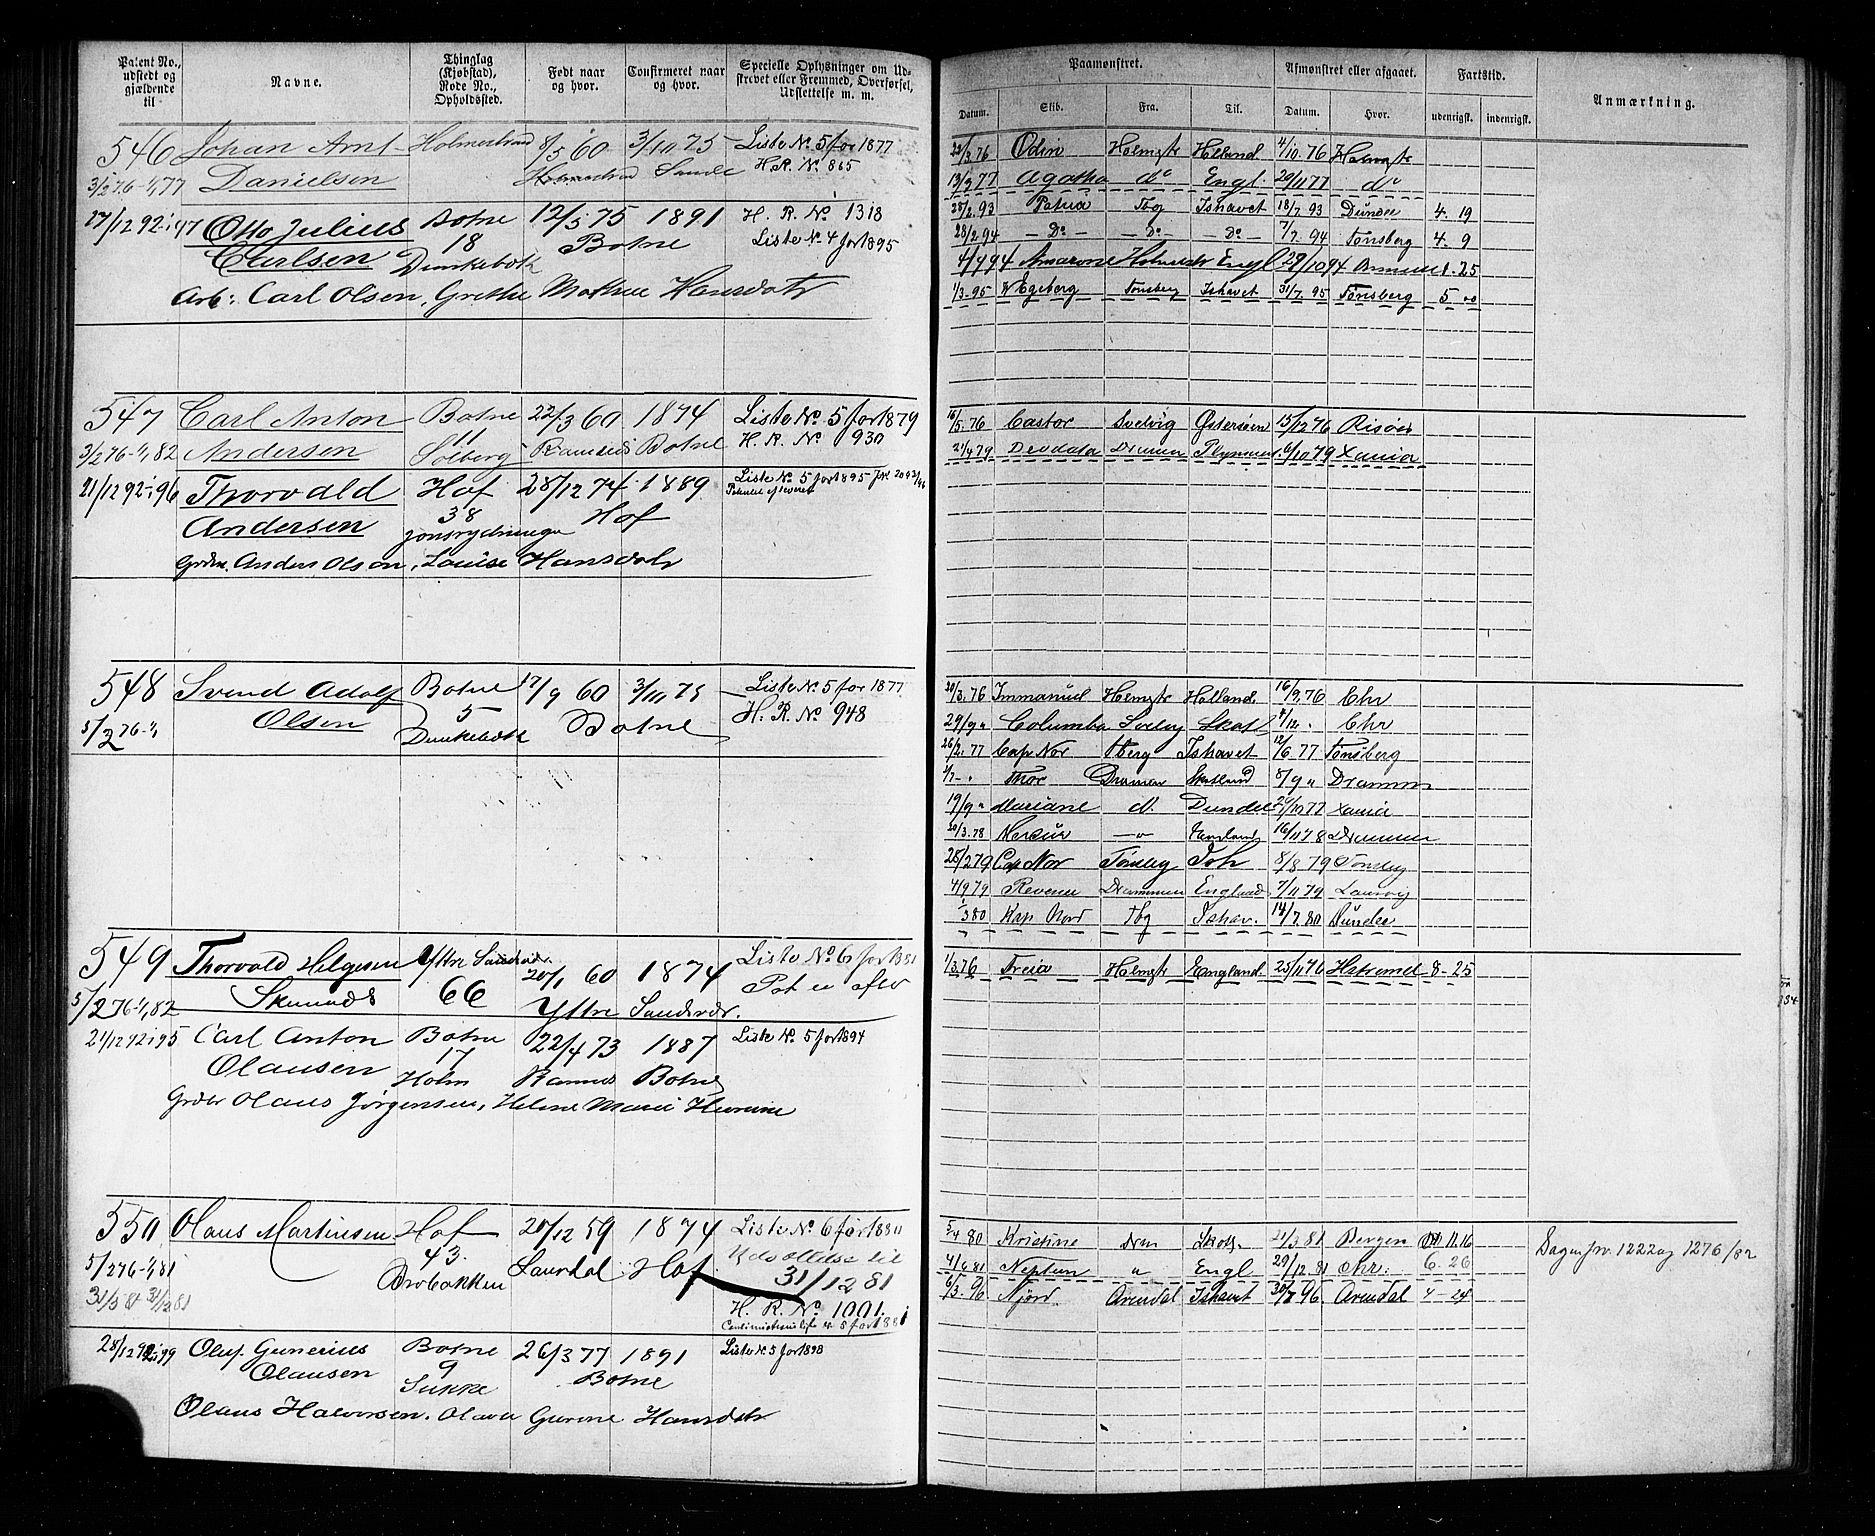 Patent No., udstedt og gjældende til
Navne.
Thinglag (Kjøbstad), Rode No., Opholdssted.
Født naar og hvor.
Confirmeret naar og hvor.
Specielle Oplysninger om Udskrevet eller Fremmed, Overførsel, Udslettelse m. m.
546 Johan Arnt Holmestrand 8/5 60 3/10 75 Liste No. 5 for 1877
3/2 76-1/1 77 Danielsen Holmestrand Sande H.R. No. 865
27/12 92-1/1 97 Otto Julius Botne 12/5 75 1891 H. R. No 1318
Carlsen 18 Botne Liste No. 4 for 1895
Dunkebæk
Arb: Carl Olsen, Grethe Mathea Hansdatr
547 Carl Anton Botne 22/3 60 1874 Liste No. 5 for 1879
3/2 76-1/1 82 Andersen 11 Solberg Ramnæs Botne H. R. No 930
21/12 92-1/1 96 Thorvald Hof 28/12 74 1889 Liste No 5 for 1895
Andersen 38 Hof
Grdm. Anders Olsen, Louise Hansdatr
548 Svend Adolf Botne 17/9 60 3/10 75 Liste No. 5 for 1877
5/2 76-1/1 Olsen 5 Botne H. R. No 948
Dunkebæk
549 Thorvald Helgesen Yttre Sandsvær 20/1 60 1874 Liste No 6 for 1881
5/2 76-1/1 82 66 Yttre Sandsvær. Pat er aflev
21/12 92-1/1 95 Carl Anton Botne 22/4 73 1887 Liste No. 5 for 1894
Olausen 17 Holm Ramnes Botne
Grdbr Olaus Jørgensen, Helene Marie
550 Olaus Martinsen Hof 20/12 59 1874 Liste No 6 for 1880
5/2 76-1/1 81 43 Laurdal Hof Udsættelse til
Brobakken 31/12 81
31/3 81 31/3 81 H. R. No. 1001.
28/12 92-1/1 99 Oluf Gunerius Botne 26/3 77 1891 Liste No. 5 for 1898
Olausen 9 Botne
Sukke
Olaus Halvorsen, Olava Gurine Hansdatr
Paamønstret.
Afmønstret eller afgaaet.
Fartstid.
Anmærkning.
Datum. Skib. Fra. Til. Datum. Hvor. udenrigsk. indenrigsk.
22/3 76 Odin Holmstr Holland 4/10 76 Holmstr
13/3 77 Agatha do Engl. 20/11 77 do
25/2 93 Patria Tbg Ishavet 18/7 93 Dundee 4. 19
28/2 94 - Do - - Do - - Do - 7/7 94 Tønsberg 4. 9
4/4 94 Holmestr Engl 29/10 94 1.25
1/3 95 Egeberg Tønsberg Ishavet 31/7 95 Tønsberg 5 00
16/5 76 Castor Svelvig Østersøen 13/12 76 Risøer
21/4 79 Deodata Drmen 6/10 79 Xania
20/3 76 Immanuel Holmstr Holland. 16/9 76 Chr
29/9 " Columba Svelvig Skotl /12 " Chr
26/2 77 Cap Nor Tberg Ishavet 12/6 77 Tønsberg
/7 " Thor Dramen Skotland 8/9 " Drammen
19/9 " Mariane do. Dundee 29/10 77 Xania
20/3 78 England 16/11 78 Drammen
25/2 79 Cap Nor Tønsbg Ish 8/8 79 Tønsbg
4/9 79 Revenu Drammen England 7/11 79 Laurvig
/3 80 Kap Nord Tbg Ishav. 14/7 80 Dundee
1/3 76 Freia Holmstr England. 25/11 76 8-25
5/4 80 Kristine Drm Skotl. 21/3 81 Bergen 11.16 Dagen for 1222 og 1276/82
4/6 81 Neptun " Engl 29/12 81 Chr: 6. 26
6/3 96 Njord Arendal Ishavet 30/8 96. Arendal 4 - 24